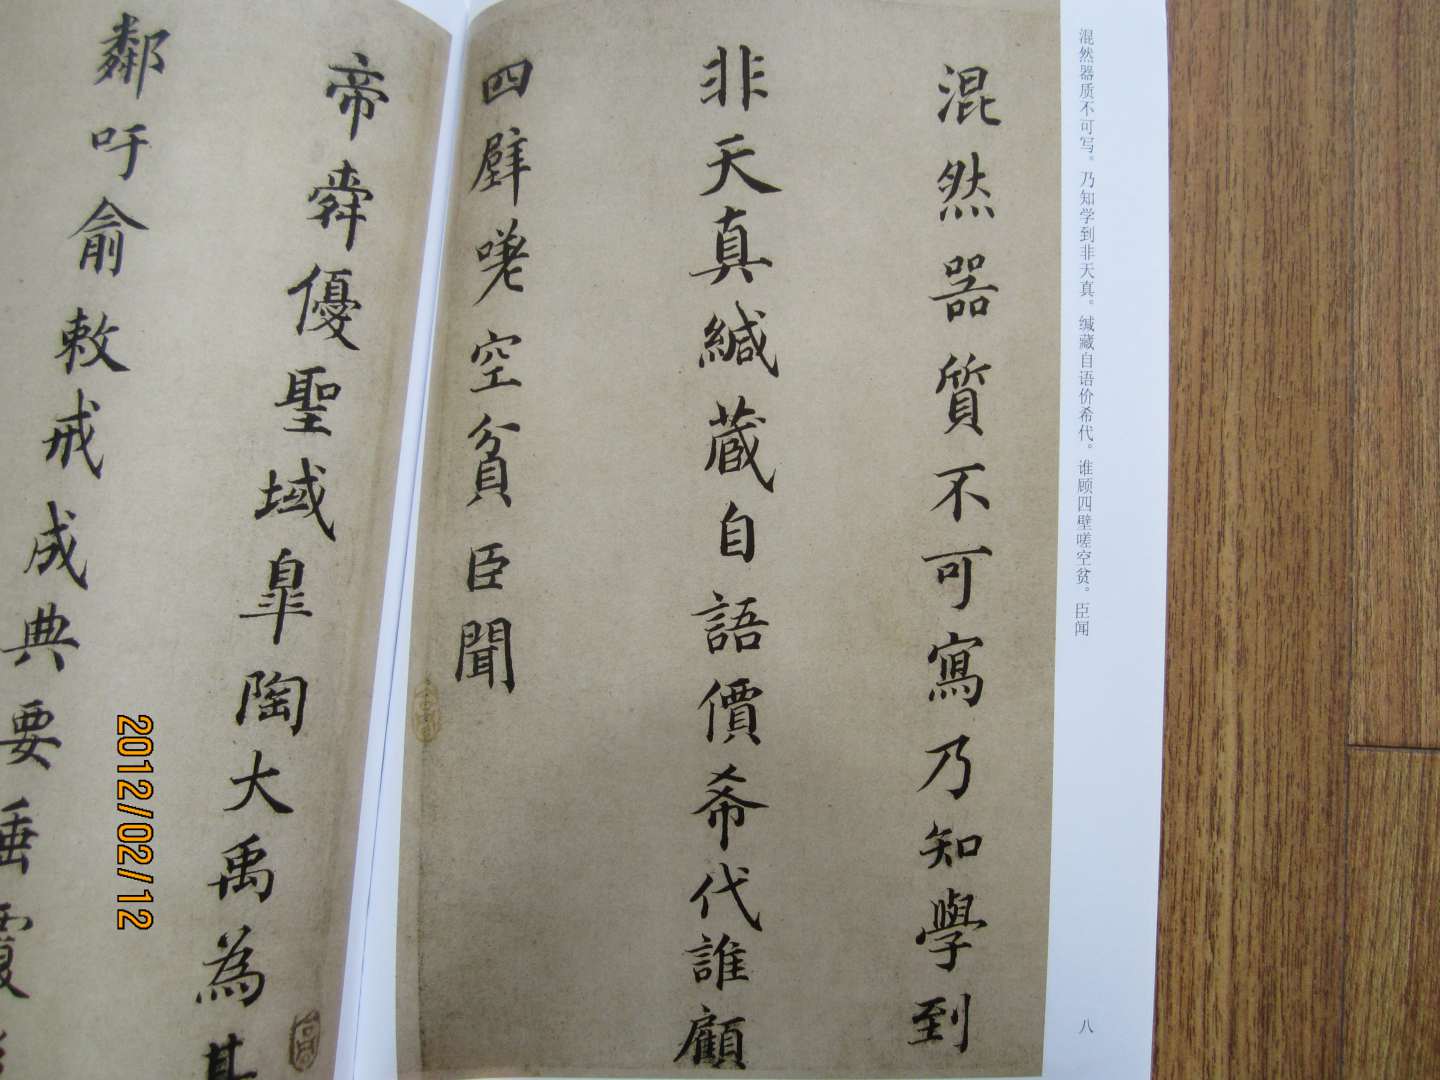 混然器质不可写。乃知学到非天真。缄藏自语价希代。谁顾四壁嗟空贫。臣闻
八
混然器質不可寫乃知學到
非天真緘蔵自語價希代誰顧
四壁嗟空貧臣聞
帝舜優聖域皐陶大禹為其
鄰吁俞敕戒成典要垂覆
2012/02/12